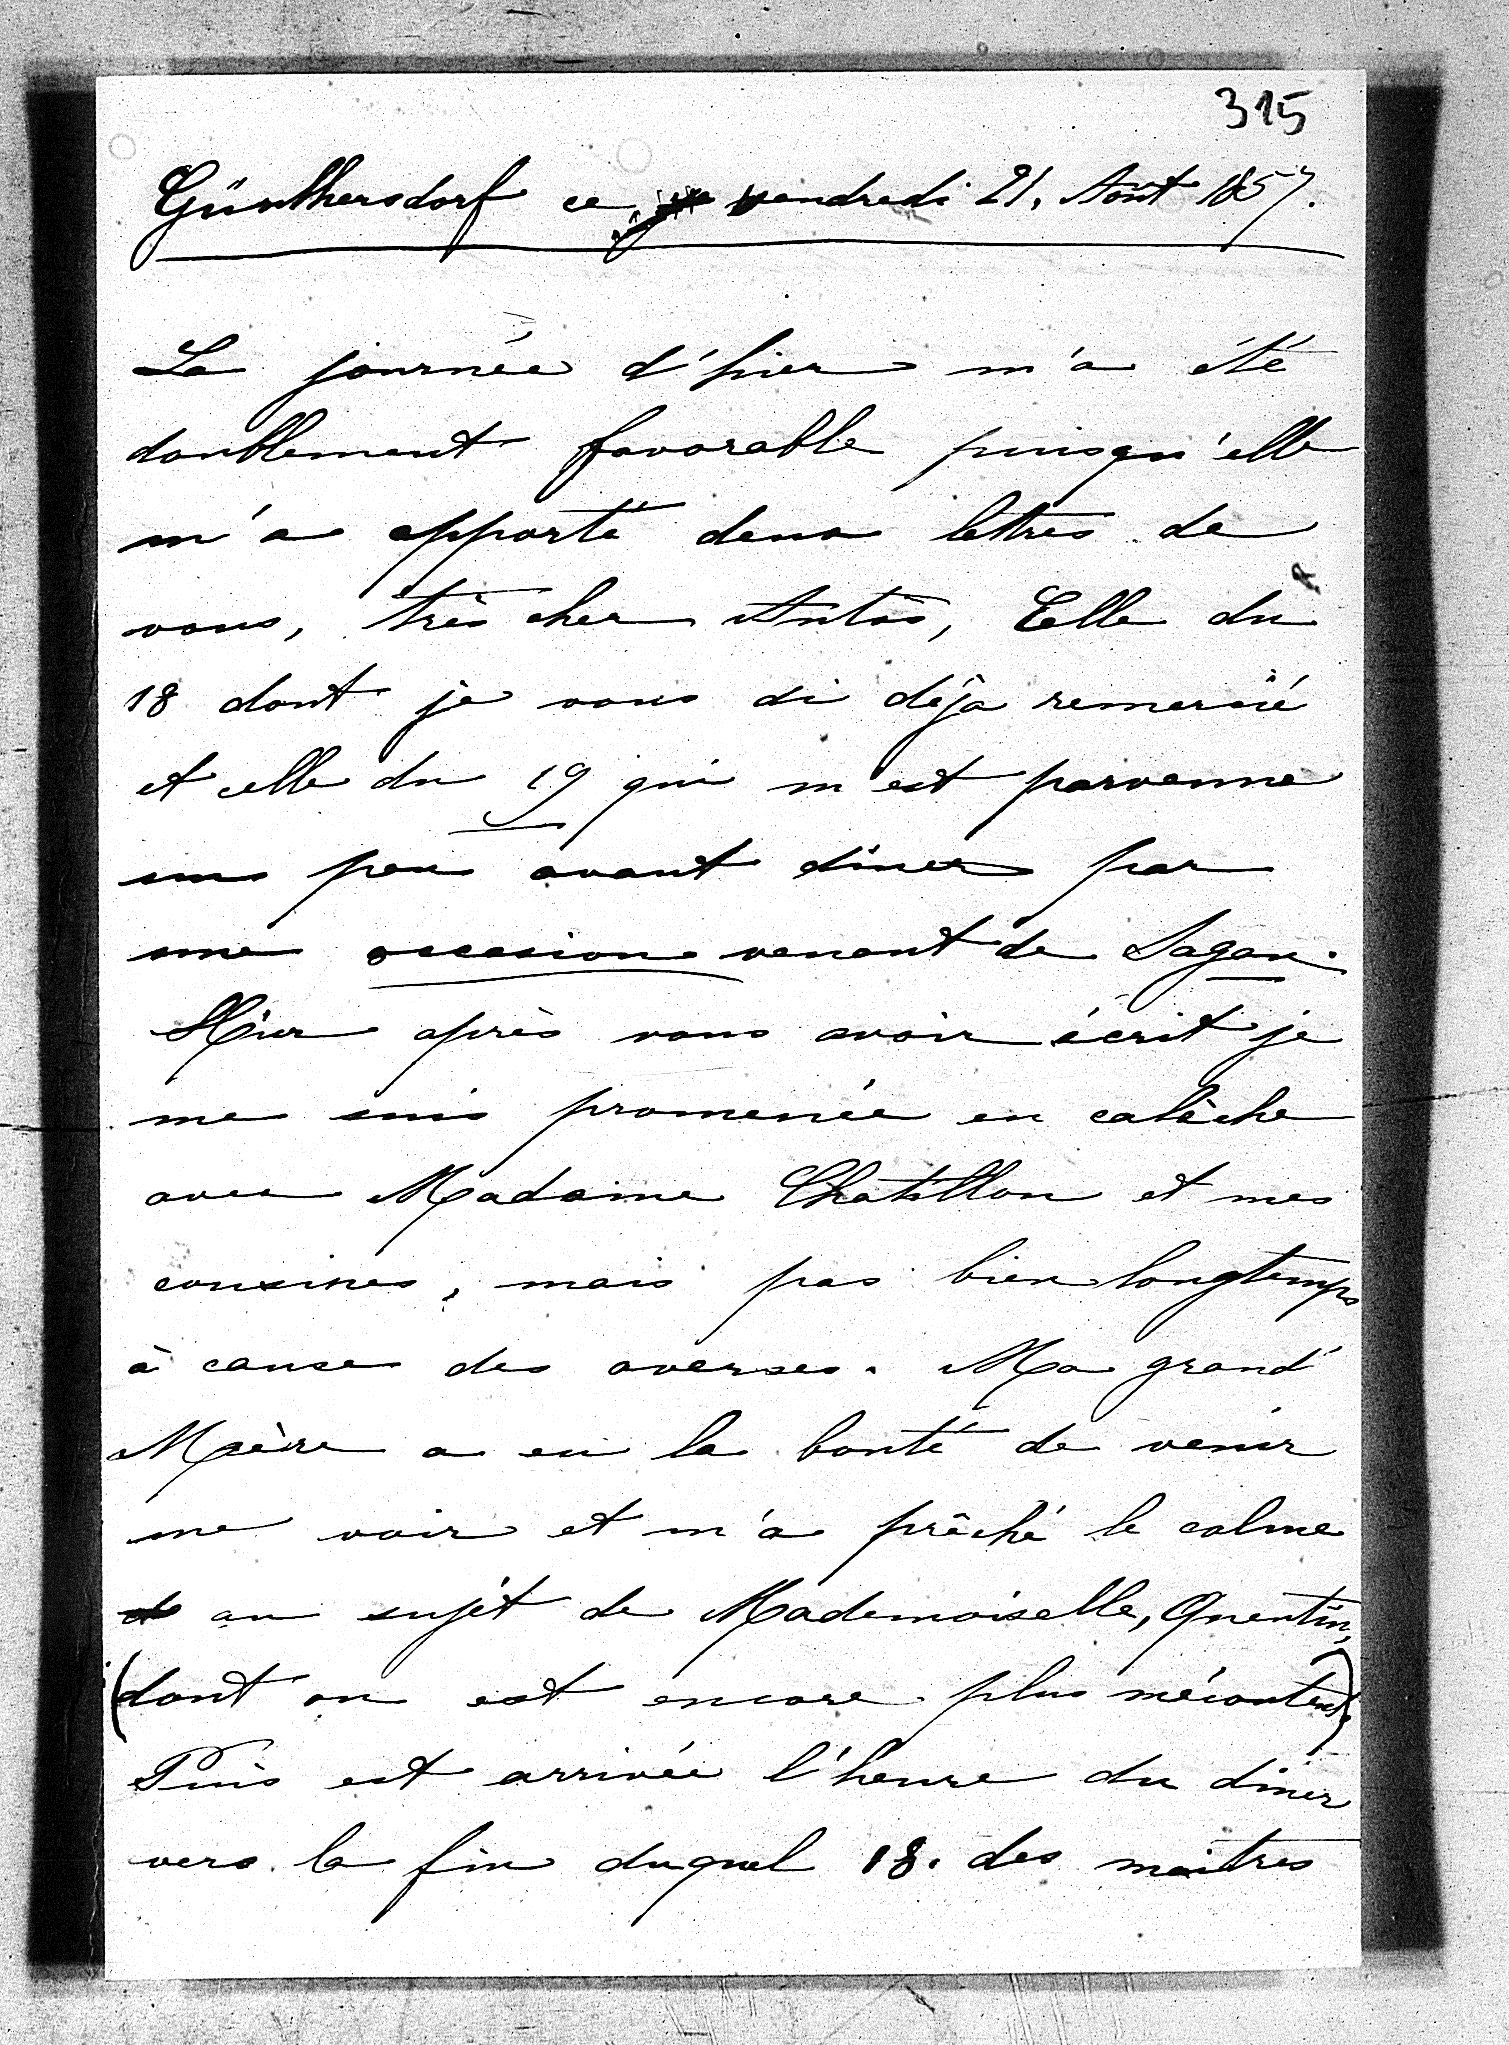 315
Günthersdorf ce vendredi 21. Août 1857.
La journée d'hier m'a été
doublement favorable puisqu'elle
m'a apporté deux lettres de
vous, très cher Antos, Celle du
18 dont je vous ai déja remercié
et celle du 19 qui m'est parvenue
un peu avant diner par
une occasion venant de Sagan.
Hier après vous avoir écrit je
me suis promenée en calèche
avec Madame Chatillon et mes
cousines, mais pas bien longtemps
à cause des averses. Ma grand'
Mère a eu la bonté de venir
me voir et m'a prêché le calme
au sujèt de Mademoiselle, Quentin,
(dont on est encore plus mécontent)
Puis est arrivée l'heure du diner
vers la fin duquel 18. des maîtres